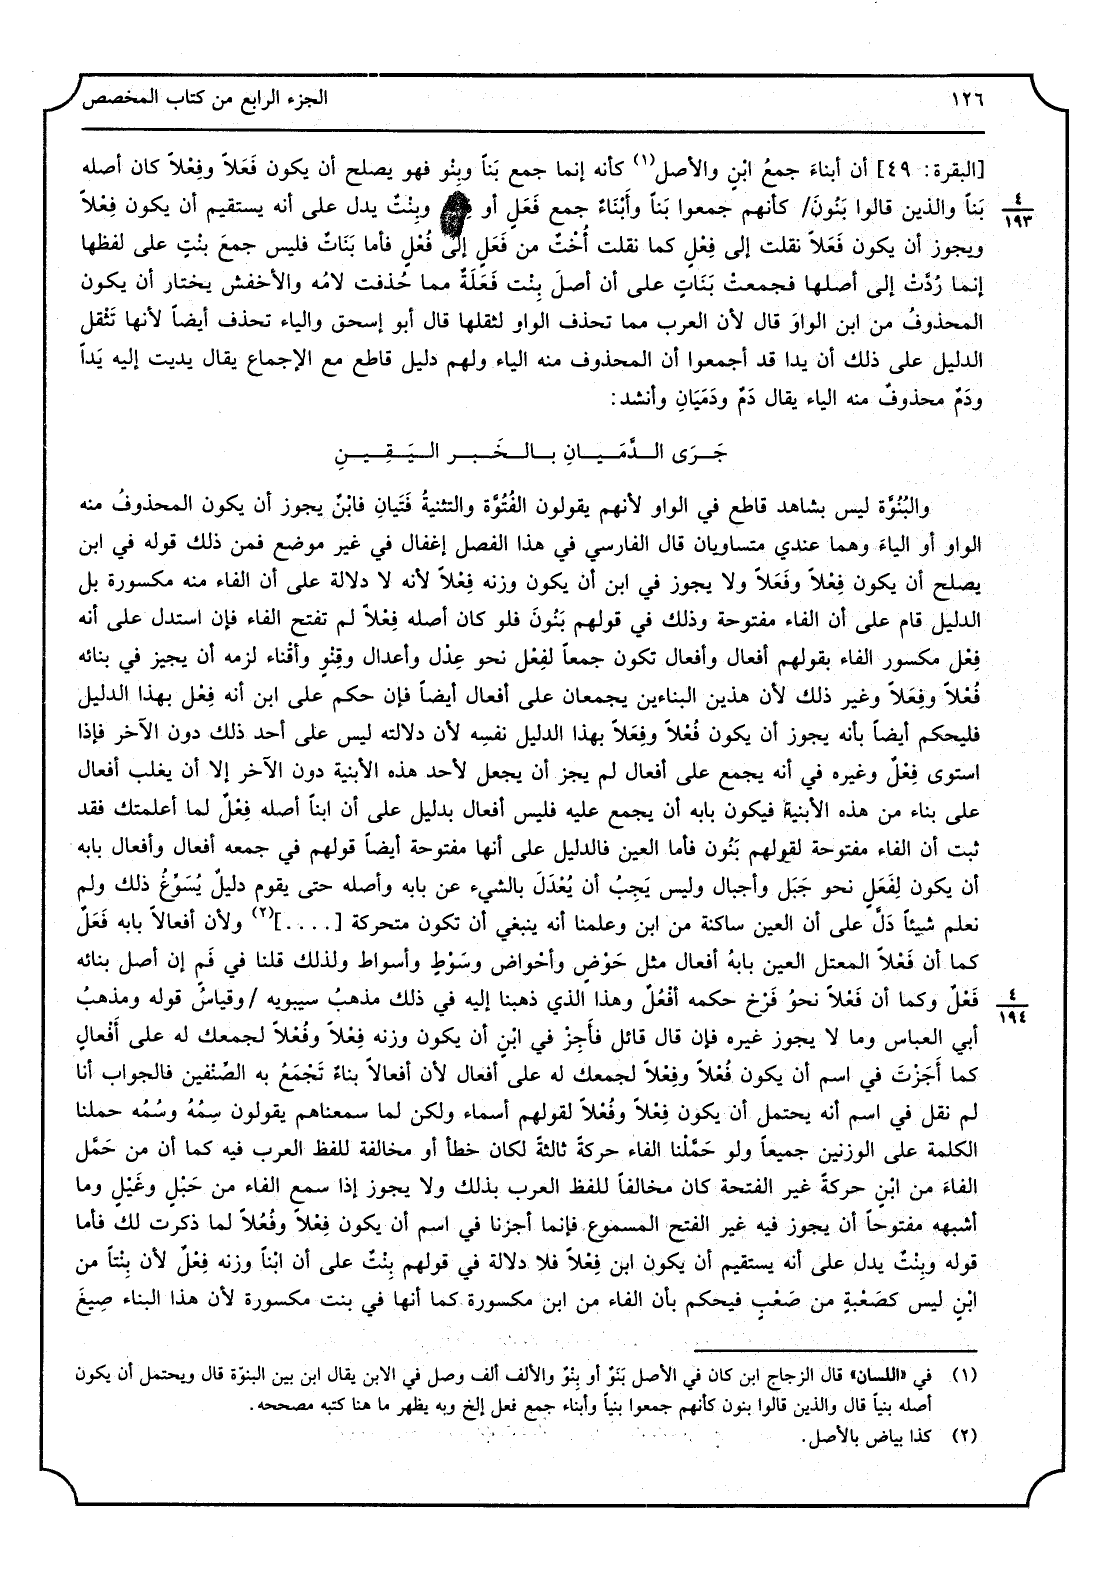 ١٢٦
الجزء الرابع من كتاب المخصص
[البقرة: ٤٩] أن أبناءَ جمعُ ابْنٍ والأصل(١) كأنه إنما جمع بَناً وبِنْو فهو يصلح أن يكون فَعَلاً وفِعْلاً كان أصله
بَناً والذين قالوا بَنُونَ/ كأنهم جمعوا بَناً وأَبْنَاءٌ جمع فَعَلٍ أو وبِنْتٌ يدل على أنه يستقيم أن يكون فِعْلاً
٤
١٩٣
ويجوز أن يكون فَعَلاً نقلت إلى فِعْلٍ كما نقلت أُخْتٌ من فَعَلٍ إلى فُعْلٍ فأما بَنَاتٌ فليس جمعَ بنْتٍ على لفظها
إنما رُدَّتْ إلى أصلها فجمعتْ بَنَاتٍ على أن أصلَ بِنْت فَعَلَةٌ مما حُذفت لامُه والأخفش يختار أن يكون
المحذوفُ من ابن الواوَ قال لأن العرب مما تحذف الواو لثقلها قال أبو إسحق والياء تحذف أيضاً لأنها تَثْقل
الدليل على ذلك أن يدا قد أجمعوا أن المحذوف منه الياء ولهم دليل قاطع مع الإجماع يقال يديت إليه يَداً
ودَمٌ محذوفٌ منه الياء يقال دَمٌ ودَمَيَانِ وأنشد:
جَـرَى الـدَّمَـيـانِ بـالـخَـبـر الـيَـقِـيـنِ
والبُنُوَّة ليس بشاهد قاطع في الواو لأنهم يقولون الفُتُوَّة والتثنيةُ فَتَيانِ فابْنٌ يجوز أن يكون المحذوفُ منه
الواو أو الياءَ وهما عندي متساويان قال الفارسي في هذا الفصل إغفال في غير موضع فمن ذلك قوله في ابن
يصلح أن يكون فِعْلاً وفَعَلاً ولا يجوز في ابن أن يكون وزنه فِعْلاً لأنه لا دلالة على أن الفاء منه مكسورة بل
الدليل قام على أن الفاء مفتوحة وذلك في قولهم بَنُونَ فلو كان أصله فِعْلاً لم تفتح الفاء فإن استدل على أنه
فِعْل مكسور الفاء بقولهم أفعال وأفعال تكون جمعاً لفِعْل نحو عِدْل وأعدال وقِنْوٍ وأقْناء لزمه أن يجيز في بنائه
فُعْلاً وفِعَلاً وغير ذلك لأن هذين البناءين يجمعان على أفعال أيضاً فإن حكم على ابن أنه فِعْل بهذا الدليل
فليحكم أيضاً بأنه يجوز أن يكون فُعْلاً وفِعَلاً بهذا الدليل نفسِه لأن دلالته ليس على أحد ذلك دون الآخر فإذا
استوى فِعْلٌ وغيره في أنه يجمع على أفعال لم يجز أن يجعل لأحد هذه الأبنية دون الآخر إلا أن يغلب أفعال
على بناء من هذه الأبنية فيكون بابه أن يجمع عليه فليس أفعال بدليل على أن ابناً أصله فِعْلٌ لما أعلمتك فقد
ثبت أن الفاء مفتوحة لقولهم بَنُون فأما العين فالدليل على أنها مفتوحة أيضاً قولهم في جمعه أفعال وأفعال بابه
أن يكون لِفَعَلٍ نحو جَبَل وأجبال وليس يَجِبُ أن يُعْدَلَ بالشيء عن بابه وأصله حتى يقوم دليلٌ يُسَوِّغُ ذلك ولم
نعلم شيئاً دَلَّ على أن العين ساكنة من ابن وعلمنا أنه ينبغي أن تكون متحركة [. . . .](٢) ولأن أفعالاً بابه فَعَلٌ
كما أن فَعْلاً المعتل العين بابهُ أفعال مثل حَوْضٍ وأحْواض وسَوْطٍ وأسواط ولذلك قلنا في فَم إن أصل بنائه
فَعْلٌ وكما أن فَعْلاً نحوُ فَرْخ حكمه أفْعُلٌ وهذا الذي ذهبنا إليه في ذلك مذهبُ سيبويه /وقياسُ قوله ومذهبُ
٤
١٩٤
أبي العباس وما لا يجوز غيره فإن قال قائل فأَجِزْ في ابْنٍ أن يكون وزنه فِعْلاً وفُعْلاً لجمعك له على أَفْعالٍ
كما أَجَزْتَ في اسم أن يكون فُعْلاً وفِعْلاً لجمعك له على أفعال لأن أفعالاً بناءٌ تَجْمَعُ به الصِّنْفين فالجواب أنا
لم نقل في اسم أنه يحتمل أن يكون فِعْلاً وفُعْلاً لقولهم أسماء ولكن لما سمعناهم يقولون سِمُهُ وسُمُه حملنا
الكلمة على الوزنين جميعاً ولو حَمَّلْنا الفاء حركةً ثالثةً لكان خطأ أو مخالفة للفظ العرب فيه كما أن من حَمَّل
الفاءَ من ابْنٍ حركةً غير الفتحة كان مخالفاً للفظ العرب بذلك ولا يجوز إذا سمع الفاء من حَبْلٍ وغَيْلٍ وما
أشبهه مفتوحاً أن يجوز فيه غير الفتح المسموع فإنما أجزنا في اسم أن يكون فِعْلاً وفُعُلاً لما ذكرت لك فأما
قوله وبِنْتٌ يدل على أنه يستقيم أن يكون ابن فِعْلاً فلا دلالة في قولهم بِنْتٌ على أن ابْناً وزنه فِعْلٌ لأن بِنْتاً من
ابْنٍ ليس كصَعْبةٍ من صَعْبٍ فيحكم بأن الفاء من ابن مكسورة كما أنها في بنت مكسورة لأن هذا البناء صِيغَ
(١) في «اللسان» قال الزجاج ابن كان في الأصل بَنَوٌ أو بِنْوٌ والألف ألف وصل في الابن يقال ابن بين البنوّة قال ويحتمل أن يكون
أصله بنياً قال والذين قالوا بنون كأنهم جمعوا بنياً وأبناء جمع فعل إلخ وبه يظهر ما هنا كتبه مصححه.
(٢) كذا بياض بالأصل.